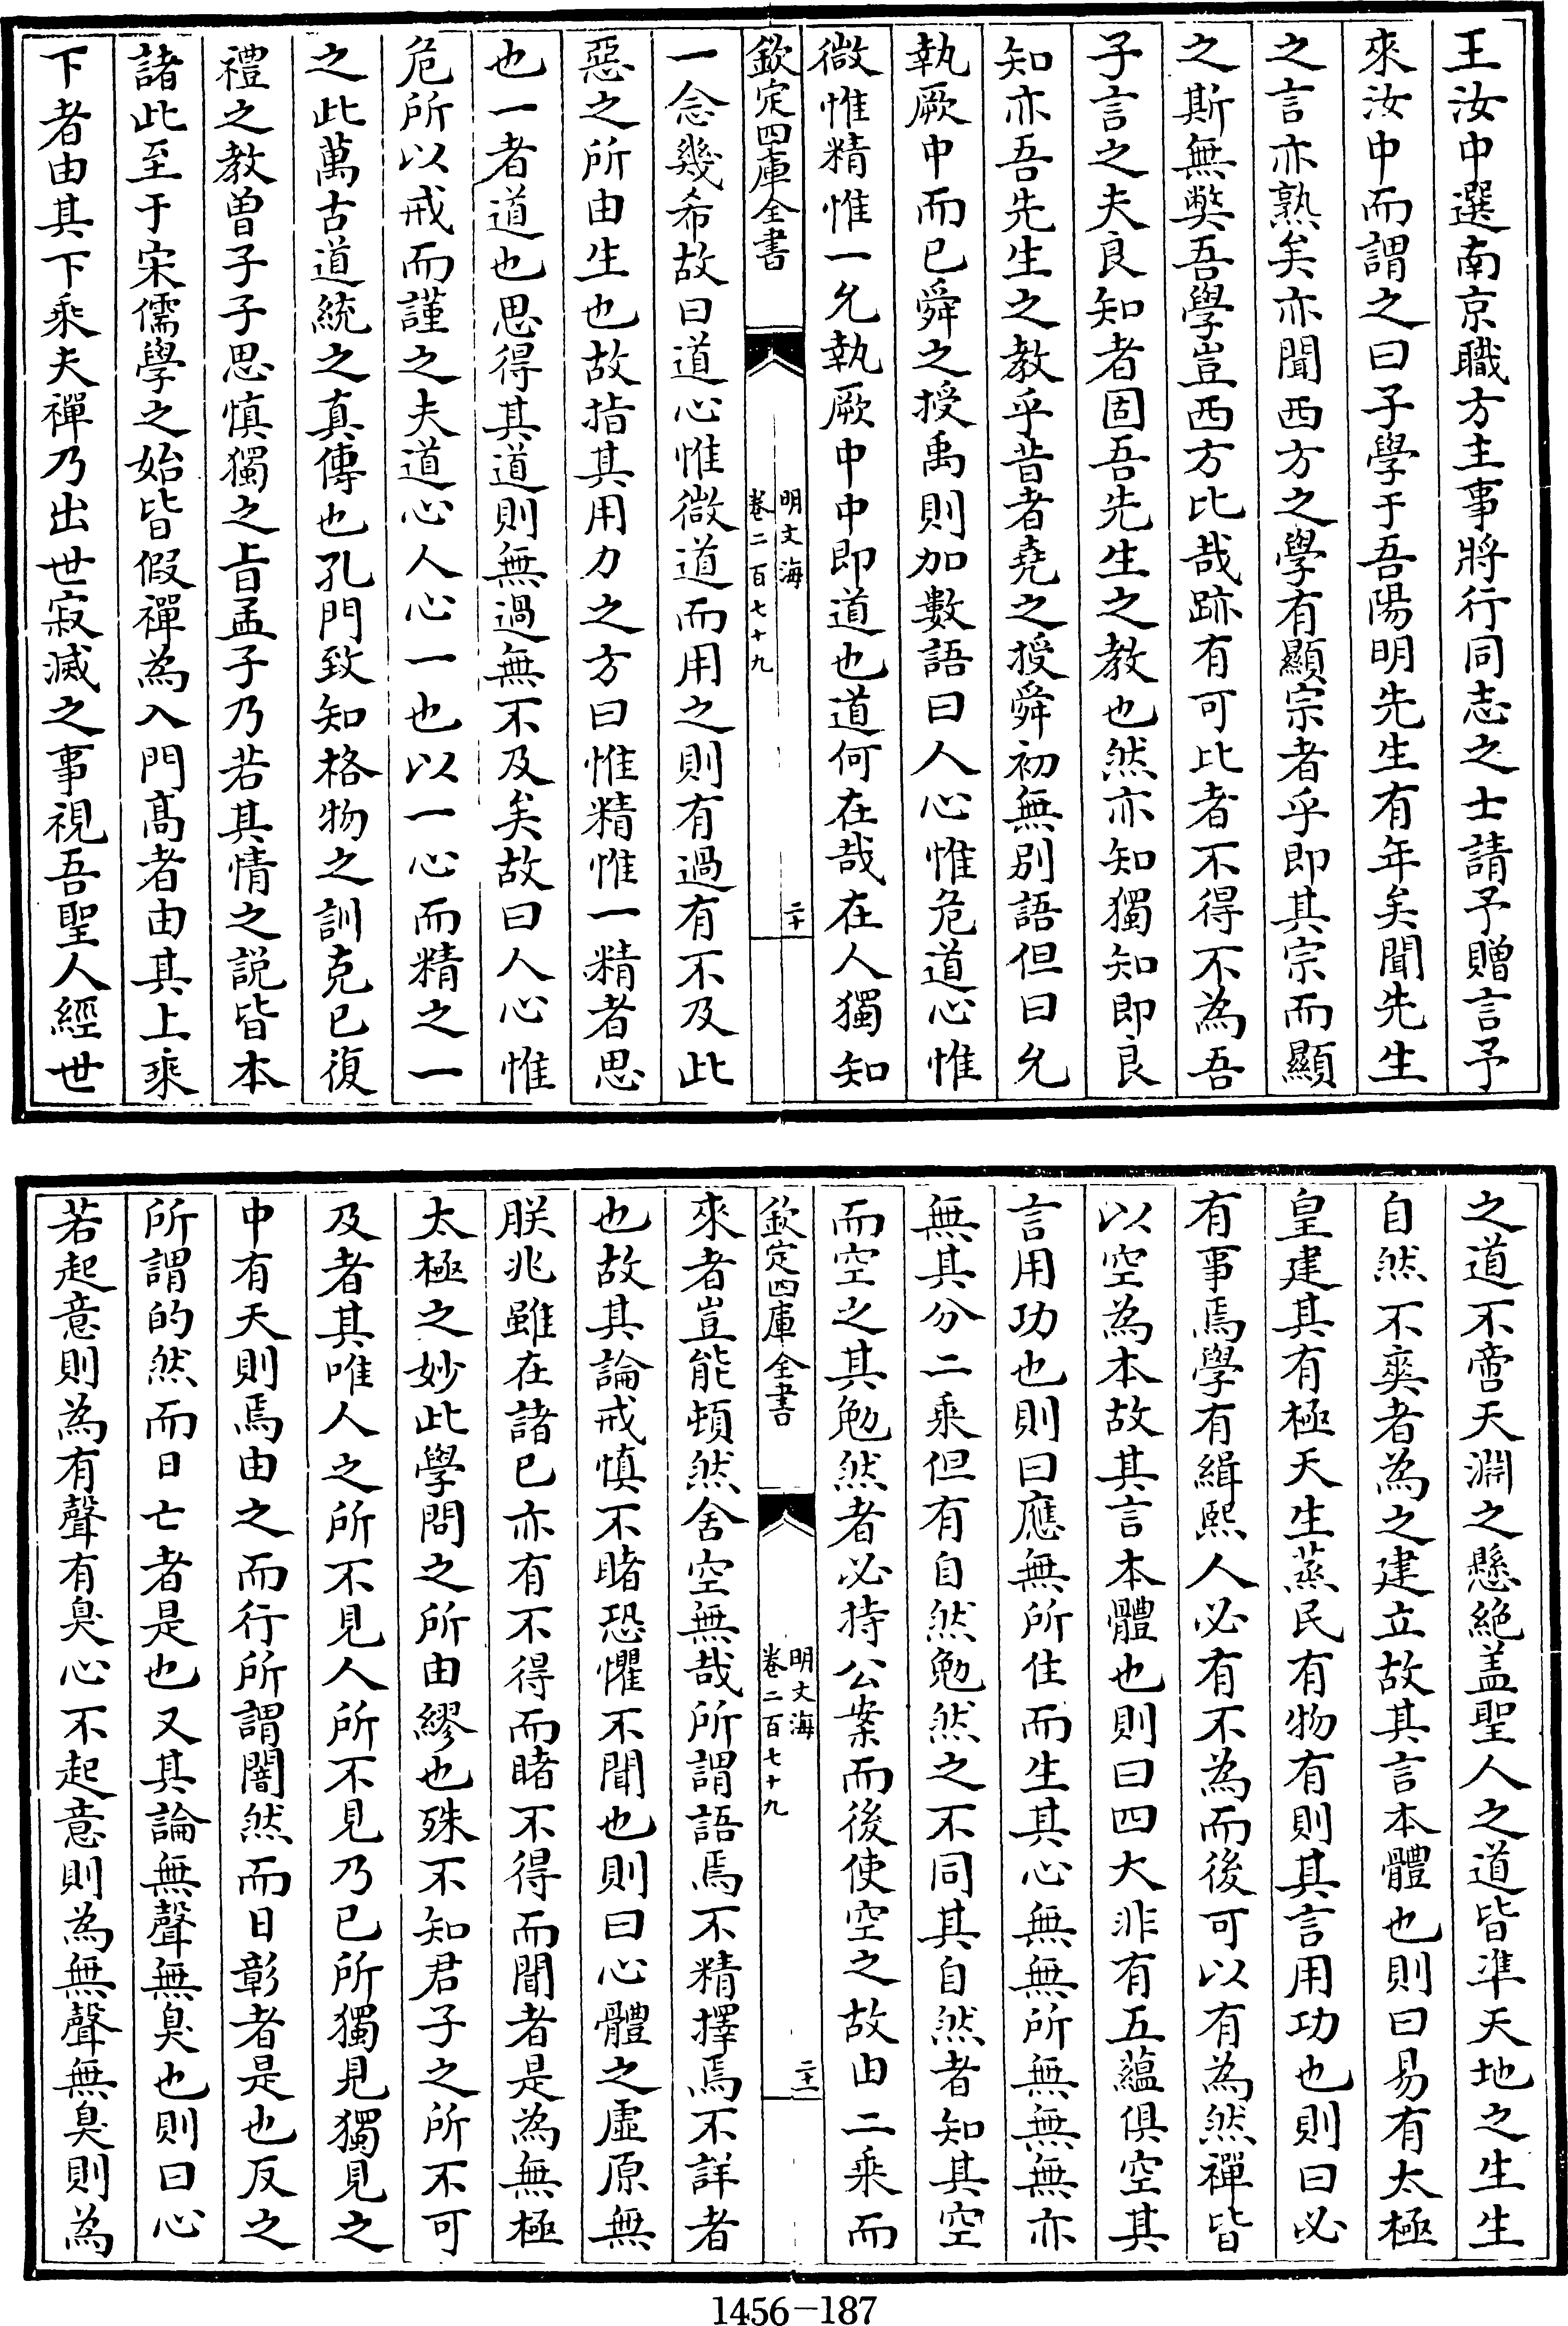 王汝中選南京職方主事將行同志之士請予贈言予
來汝中而謂之曰子學于吾陽明先生有年矣聞先生
之言亦熟矣亦聞西方之學有顯宗者乎即其宗而顯
之斯無獘吾學豈西方比哉跡有可比者不得不為吾
子言之夫良知者固吾先生之教也然亦知獨知即良
知亦吾先生之教乎昔者堯之授舜初無別語但曰允
執厥中而已舜之授禹則加數語曰人心惟危道心惟
微惟精惟一允執厥中中即道也道何在哉在人獨知
欽定四庫全書
明文海
卷二百七十九
二十
一念幾希故曰道心惟微道而用之則有過有不及此
惡之所由生也故指其用力之方曰惟精惟一精者思
也一者道也思得其道則無過無不及矣故曰人心惟
危所以戒而謹之夫道心人心一也以一心而精之一
之此萬古道統之真傳也孔門致知格物之訓克已復
禮之教曾子子思慎獨之旨孟子乃若其情之説皆本
諸此至于宋儒學之始皆假禪為入門髙者由其上乘
下者由其下乘夫禪乃出世寂滅之事視吾聖人經世
之道不啻天淵之懸絶盖聖人之道皆準天地之生生
自然不爽者為之建立故其言本體也則曰易有太極
皇建其有極天生蒸民有物有則其言用功也則曰必
有事焉學有緝熙人必有不為而後可以有為然禪皆
以空為本故其言本體也則曰四大非有五藴俱空其
言用功也則曰應無所住而生其心無無所無無無亦
無其分二乘但有自然勉然之不同其自然者知其空
而空之其勉然者必持公案而後使空之故由二乘而
欽定四庫全書
明文海
卷二百七十九
二十一
來者豈能頓然舍空無哉所謂語焉不精擇焉不詳者
也故其論戒慎不睹恐懼不聞也則曰心體之虛原無
朕兆雖在諸已亦有不得而睹不得而聞者是為無極
太極之妙此學問之所由繆也殊不知君子之所不可
及者其唯人之所不見人所不見乃已所獨見獨見之
中有天則焉由之而行所謂闇然而日彰者是也反之
所謂的然而日亡者是也又其論無聲無臭也則曰心
若起意則為有聲有臭心不起意則為無聲無臭則為
1456-187